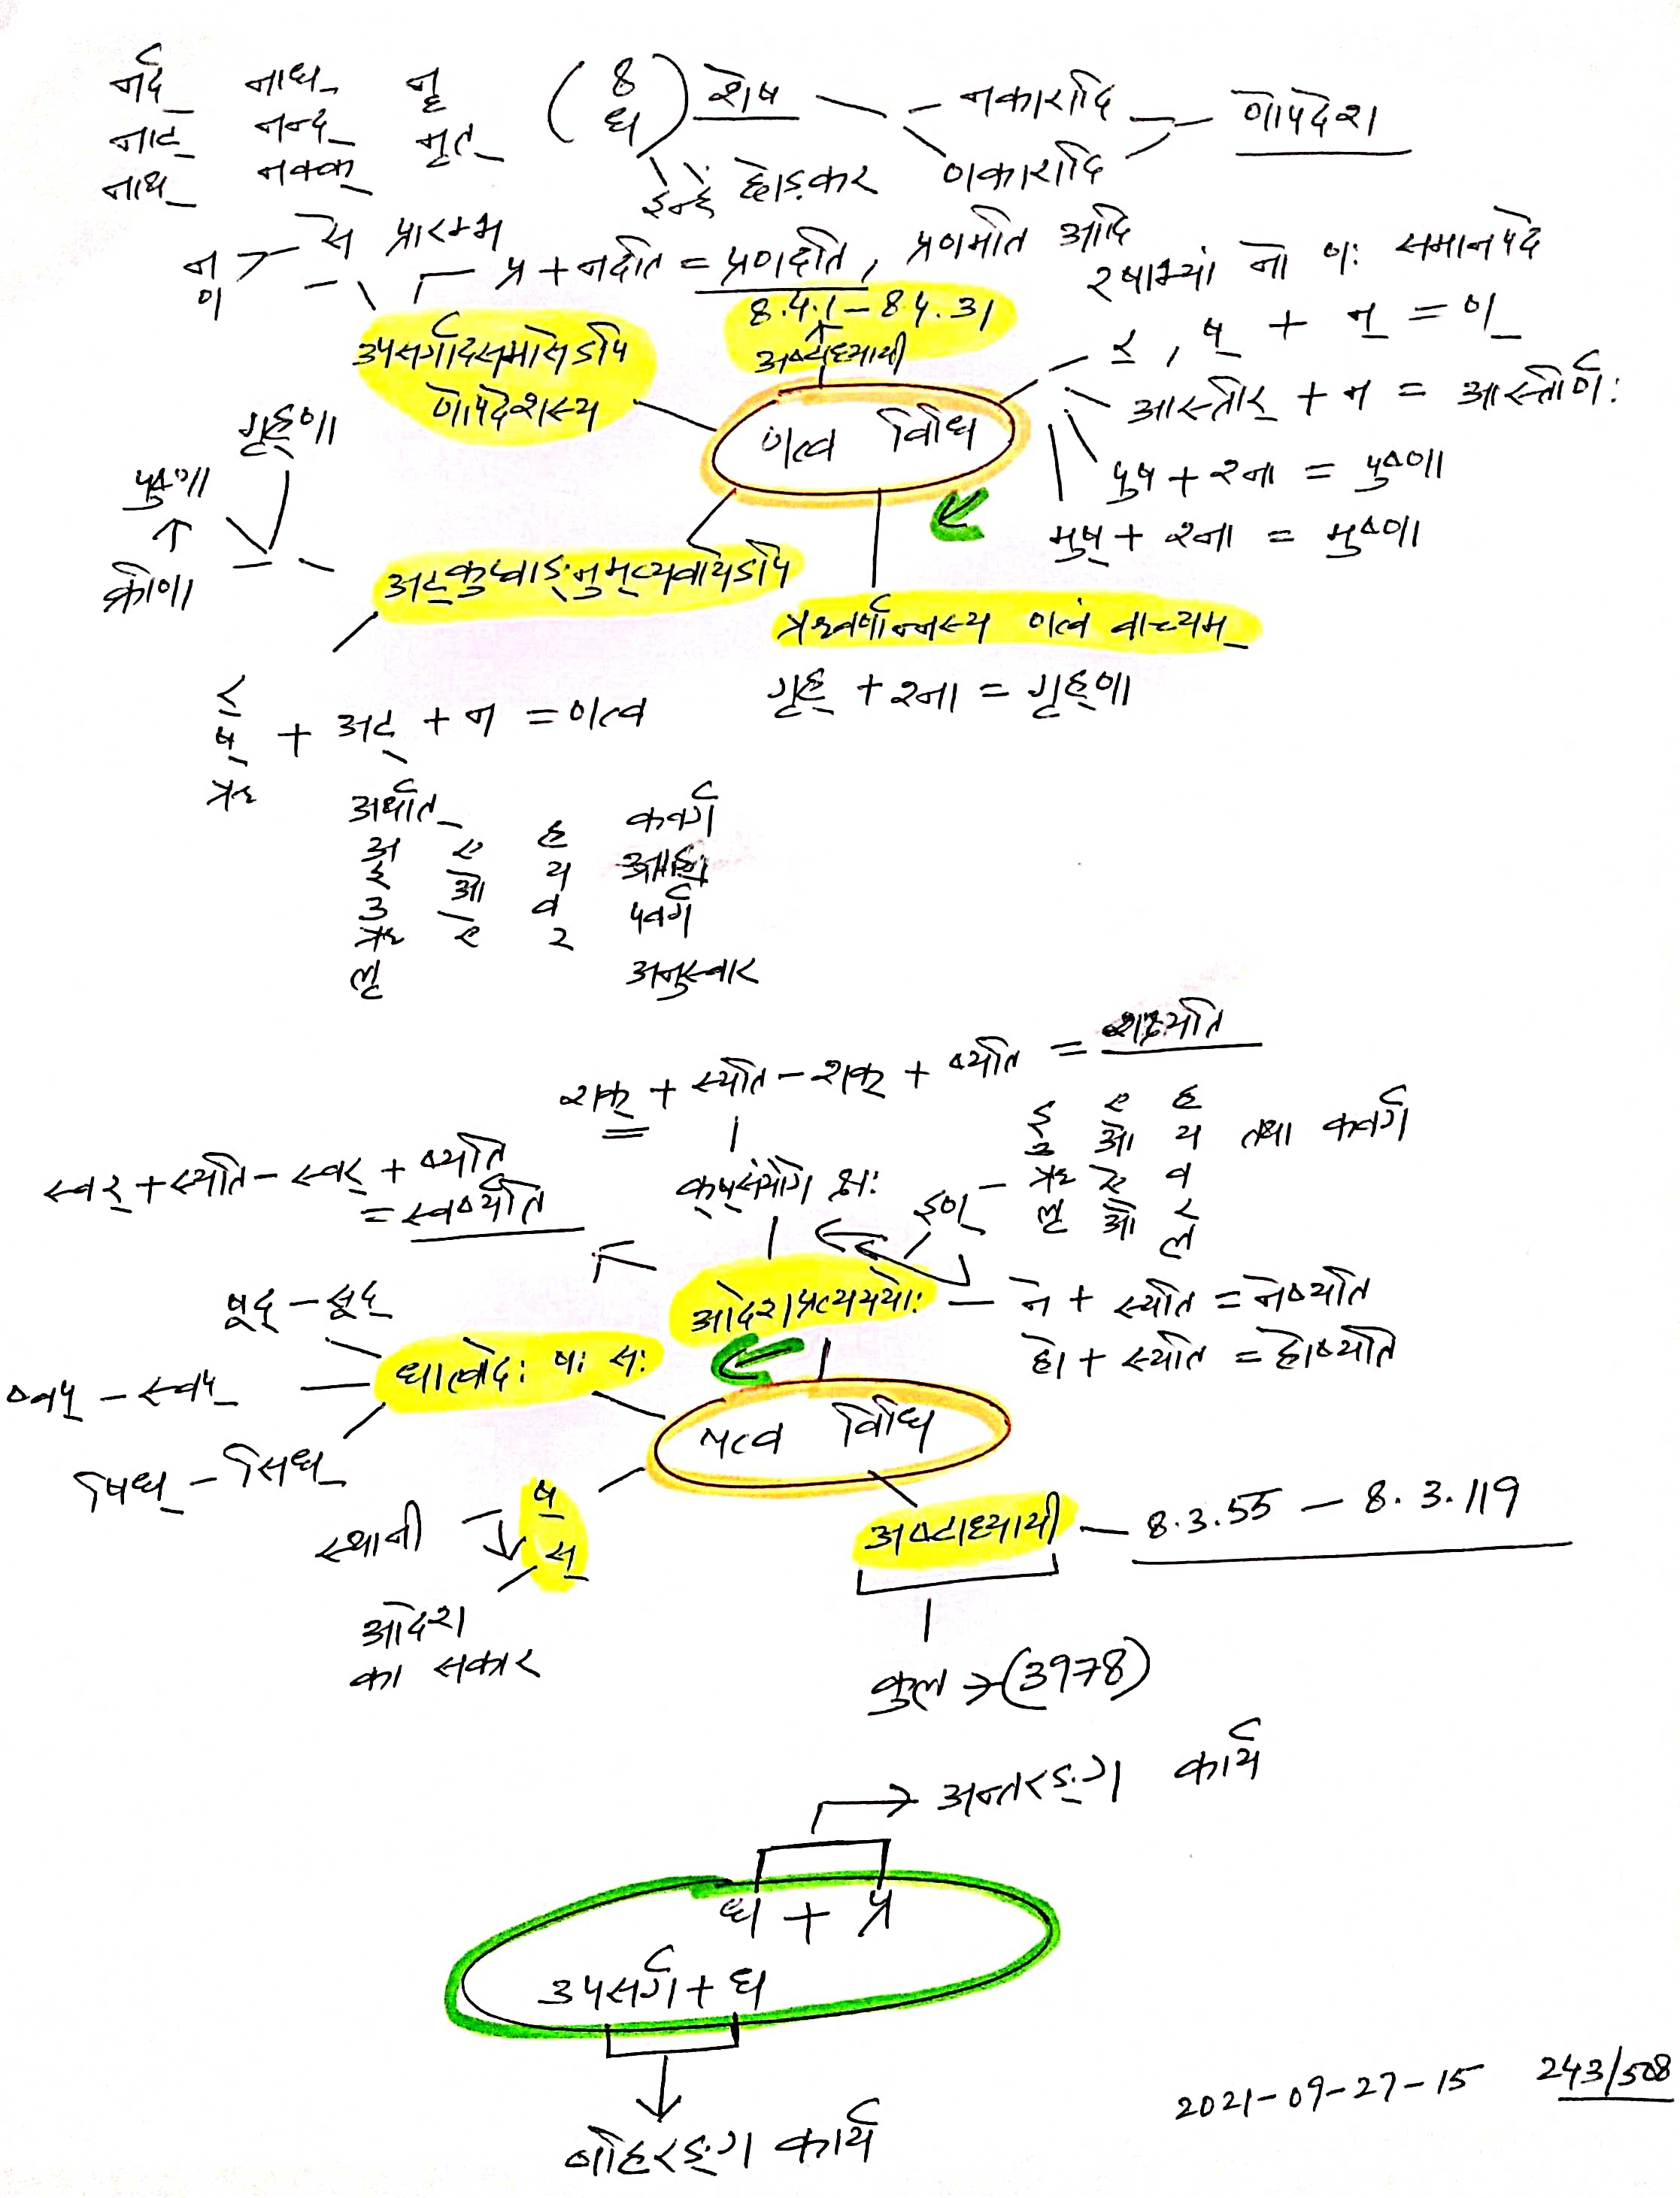 नर्द् नाध् नॄ ( 8 धा ) शेष - नकारादि - णोपदेश
नाट् नन्द् नृत्
नाथ् नक्क् इन्हें छोड़कर णकारादि
न ण से प्रारम्भ
प्र + नर्दति = प्रणर्दति, प्रणमति आदि
रषाभ्यां नो णः समानपदे
8.4.1 - 8.4.31
अष्टाध्यायी
उपसर्गादसमासेऽपि
णोपदेशस्य
र् , ष् + न् = ण्
णत्व विधि
आस्तीर् + न = आस्तीर्णः
गृह्णा
पुष्णा
पुष + श्ना = पुष्णा
मुष् + श्ना = मुष्णा
क्रीणा
अट्कुप्वाङ्नुम्व्यवायेऽपि
ऋवर्णान्नस्य णत्वं वाच्यम्
गृह् + श्ना = गृह्णा
र्
ष् + अट् + न = णत्व
ऋ
अर्थात्
अ ए ह कवर्ग
इ ओ य आङ्
उ ऐ व पवर्ग
ऋ औ र अनुस्वार
लृ
शक् + स्यति - शक् + ष्यति = शक्ष्यति
स्वर् + स्यति - स्वर् + ष्यति
= स्वर्ष्यति
क्ष्संयोगे क्षः
इण् - इ ए ह
उ ओ य तथा कवर्ग
ऋ ऐ व
लृ औ र
ल
आदेशप्रत्यययोः - ने + स्यति = नेष्यति
हो + स्यति = होष्यति
षूद् - सूद्
धात्वादेः षः सः
ष्वप् - स्वप्
षिध् - सिध्
षत्व विधि
स्थानी ष्
स्
आदेश
का सकार
अष्टाध्यायी - 8.3.55 - 8.3.119
कुल → (3978)
अन्तरङ्ग कार्य
धा + प्र
उपसर्ग + धा
बहिरङ्ग कार्य
2021-09-27-15 243/508